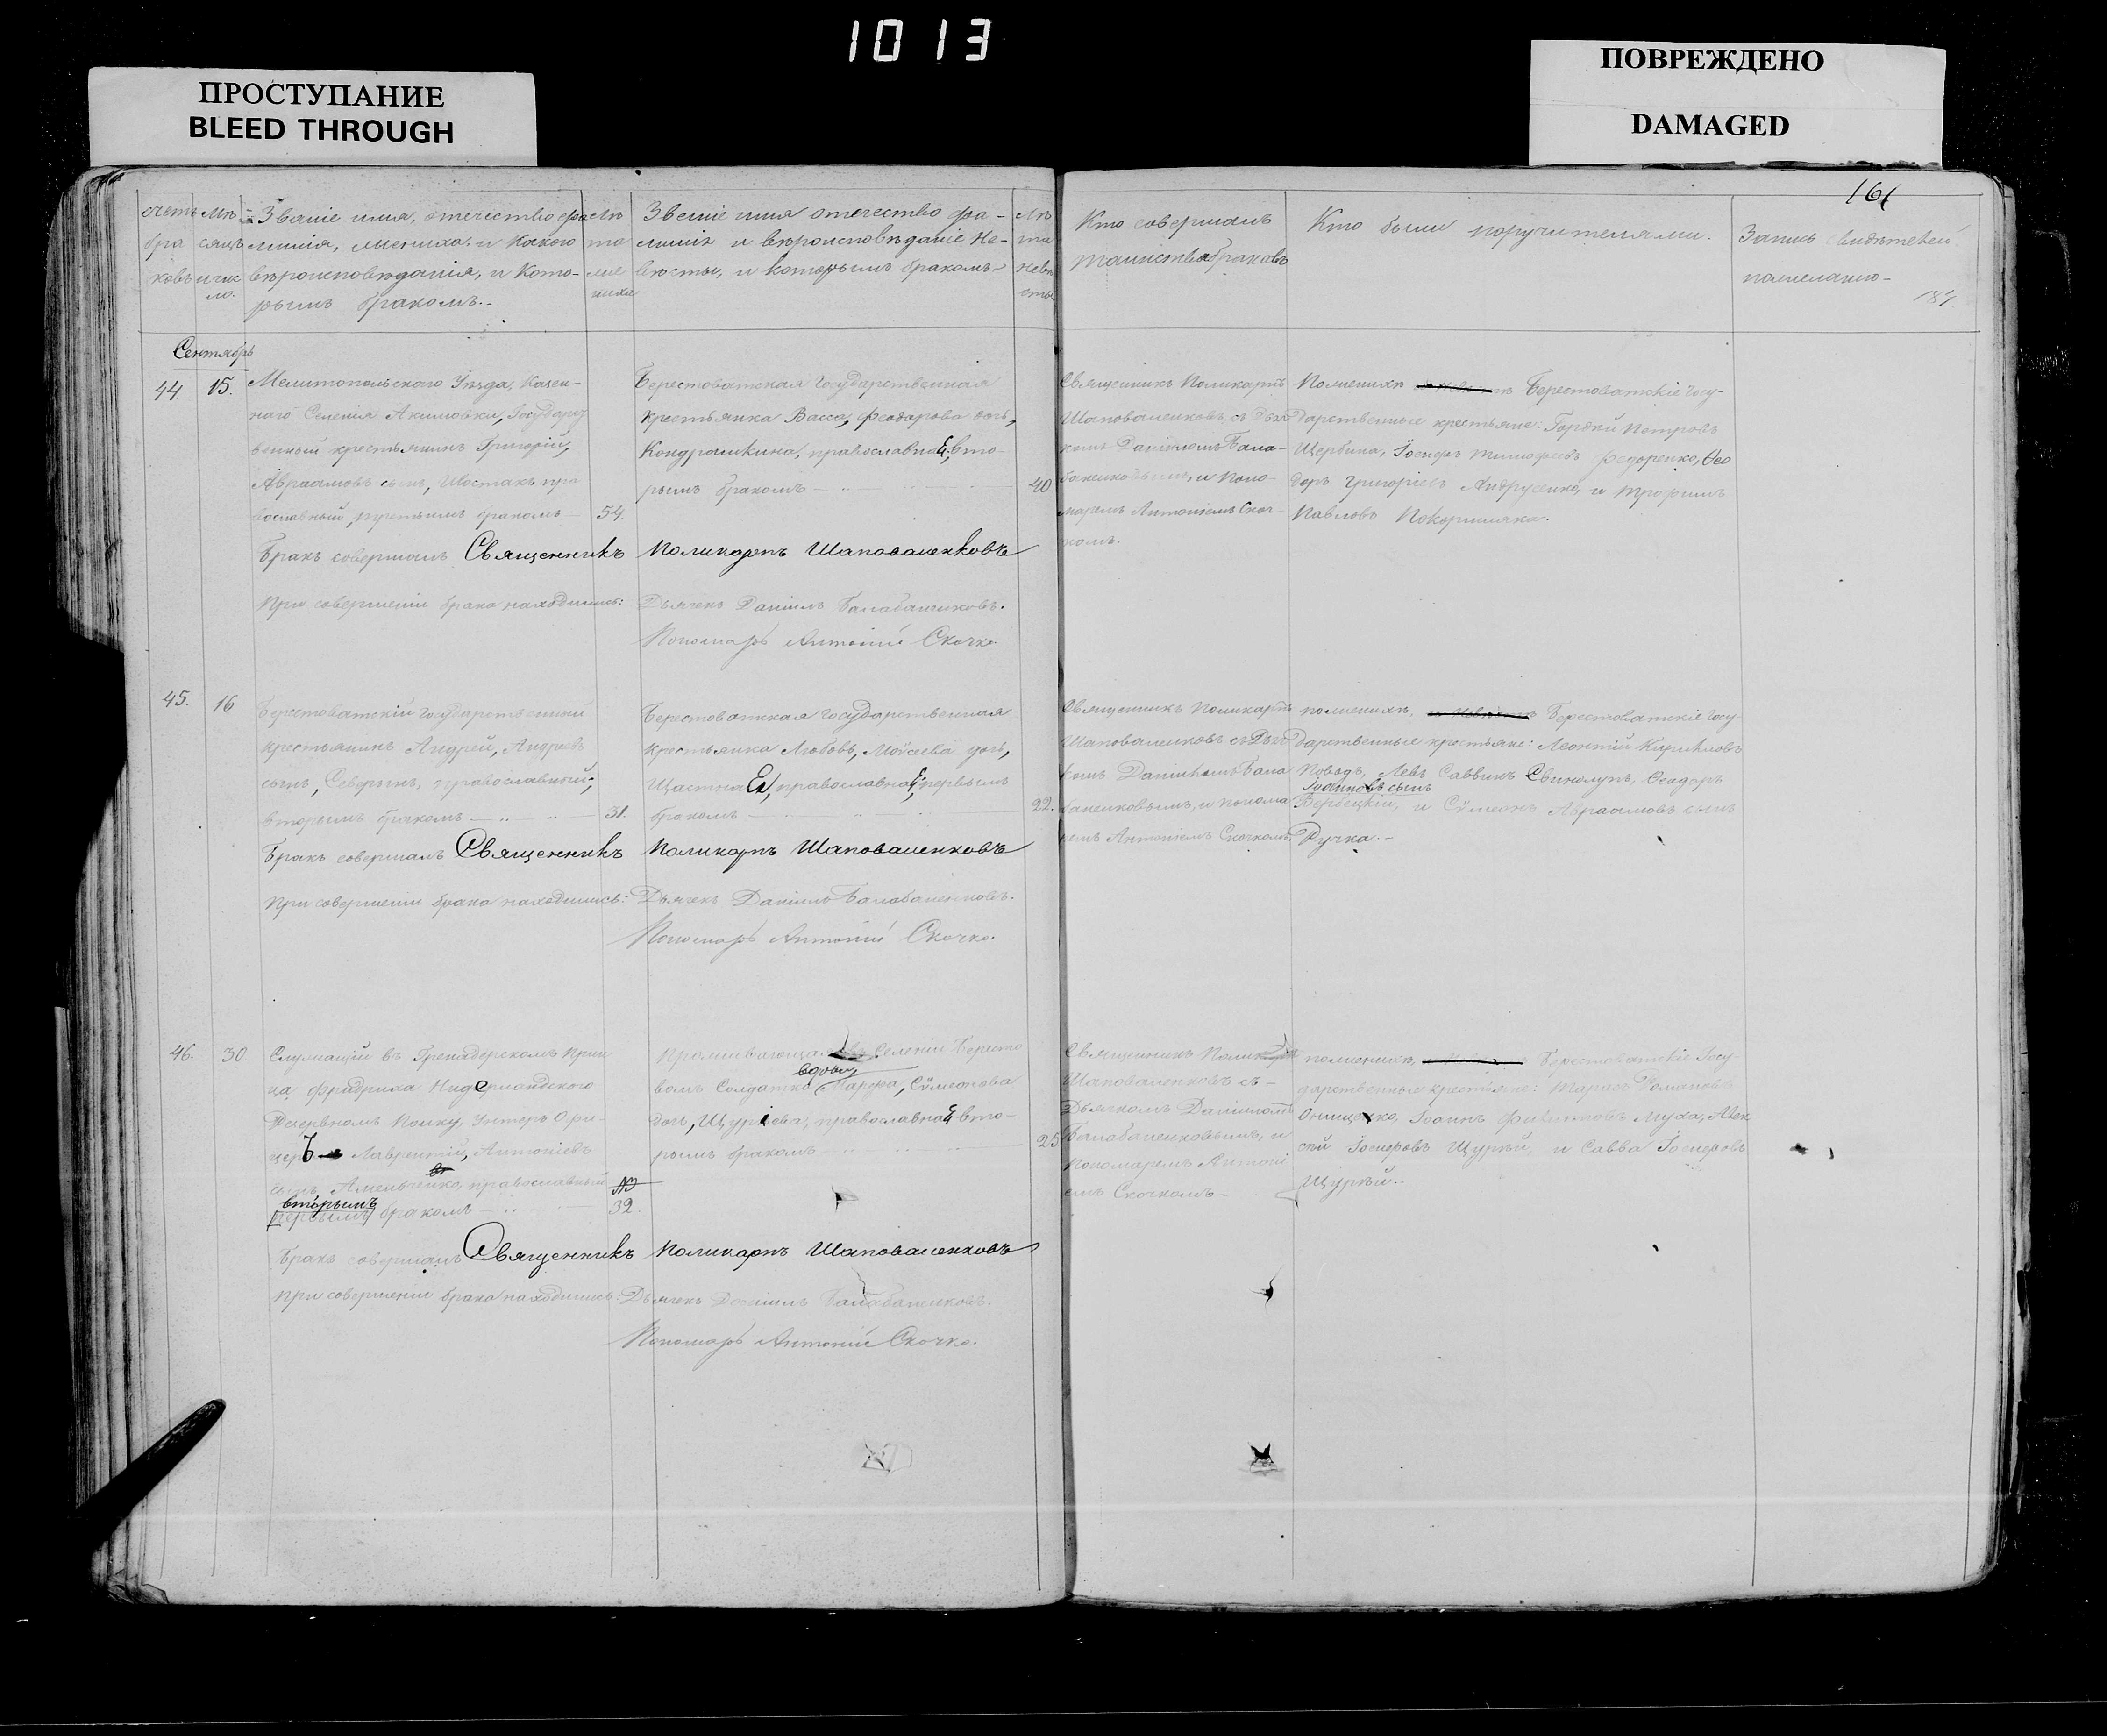 1013
ПРОСТУПАНИЕ
BLEED THROUGH
ПОВРЕЖДЕНО
DAMAGED
161
счетъ браковъ
Мѣсяцъ и число.
Званіе имя, отечество фамилія, жениха, и какого
вѣроисповѣданія, и кото-
рымъ бракомъ.-
Лѣта жениха
Званіе имя отечество фа-
милія и вѣроисповѣданіе не-
вѣсты, и которымъ бракомъ-
Лѣта невѣсты
Кто совершалъ
таинство браковъ
Кто были поручителями.
Запись свидѣтелей
по желанію-
Сентябрь
44. 15.
Мелитопольскаго Уѣзда, Казен-
наго Селенія Акимовки, Государст
венный крестьянинъ Григорій,
Авраамовъ сынъ, Шостакъ пра
вославный, третьимъ бракомъ— 54.
Берестоватская Государственная
крестьянка Васса, Феодорова дочь,
Кондрашкина, православнаѧ, вто-
рымъ бракомъ — 40
Священникъ Поликарпъ
Шаповаленковъ, съ Дьяч
комъ Даніиломъ Бала-
баненковымъ, и Поно-
маремъ Антоніемъ Скоч-
комъ.
По женихѣ Берестоватскіе Госу-
дарственные крестьяне: Гордѣй Петровъ
Щербина, Іосифъ Тимофеевъ Федоренко, Ѳео
доръ Григоріевъ Андрусенко, и Трофимъ
Павловъ
Бракъ совершалъ Священникъ Поликарпъ Шаповаленковъ
При совершеніи брака находились: Дьячекъ Даніилъ Балабаненковъ.
Пономарь Антоній Скочко.
45. 16
Берестоватскій Государственный
крестьянинъ Андрей, Андреевъ
сынъ, Северинъ, православный,
вторымъ бракомъ — 31.
Берестоватская Государственная
крестьянка Любовь, Моѵсеева дочь,
Щастнаѧ, православнаѧ, первымъ
бракомъ — 22.
Священникъ Поликарпъ
Шаповаленковъ съ Дьяч
комъ Даніиломъ Бала
баненковымъ, и понома
ремъ Антоніемъ Скочкомъ.
по женихѣ, Берестоватскіе Госу
дарственные крестьяне: Леонтій Кирилловъ
Левъ Саввинъ Свинолупъ, Ѳеодоръ
сынъ
Вербецкій, и Сѵмеонъ Авраамовъ сынъ
Ручка.-
Бракъ совершалъ Священникъ Поликарпъ Шаповаленковъ
При совершеніи брака находились: Дьячекъ Даніилъ Балабаненковъ.
Пономарь Антоній Скочко.
46. 30.
Служащій въ Гренадерскомъ Прин
ца Фридриха Нидерландского
Резервномъ Полку, Унтеръ Офи-
церъ Лаврентій, Антоніевъ
сынъ, Амельченко, православный
вторымъ
первымъ бракомъ — 32.
Проживающая Селеніи Бересто
вомъ Солдатка вдова Марфа, Сѵмеонова
дочь, Щуріева, православнаѧ вто-
рымъ бракомъ — 25
Священникъ Поликарпъ
Шаповаленковъ съ-
Дьячкомъ Даніиломъ
Балабаненковымъ, и
Пономаремъ Антоні
емъ Скочкомъ-
по женихѣ, Берестоватскіе Госу-
дарственные крестьяне: Тарасъ Романовъ
Онищенко, Іоаннъ Филиповъ Муха, Алек
сѣй Іосифовъ Щурѣй, и Савва Іосифовъ
Щурѣй.-
Бракъ совершалъ Священникъ Поликарпъ Шаповаленковъ
При совершеніи брака находились: Дьячекъ Даніилъ Балабаненковъ.
Пономарь Антоній Скочко.